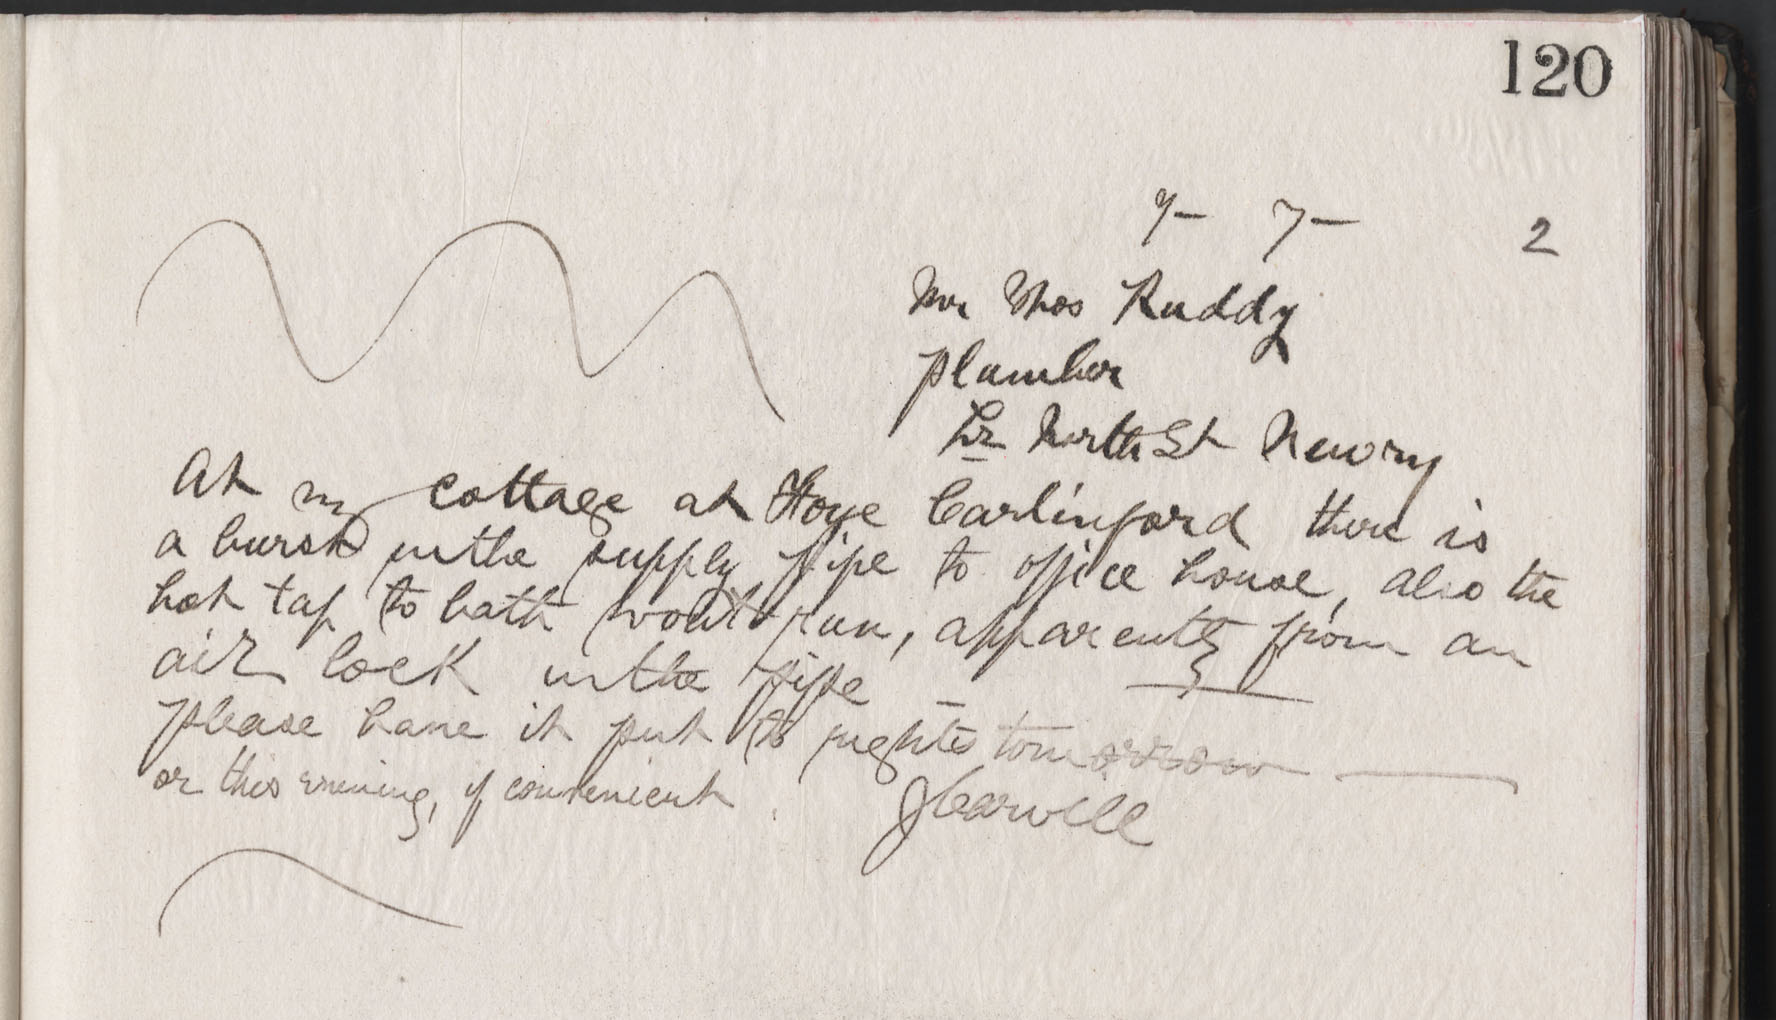 120
9- 7- 2
Mr Thos Ruddy
plumber
Lr North St Newry
At my cottage at Carlingford there is
a burst in the supply pipe to office house, also the
hot tap to bath won't run, apparently from an
air lock in the pipe -
please have it put to rights tomorrow
or this evening, if convenient. JCarvill